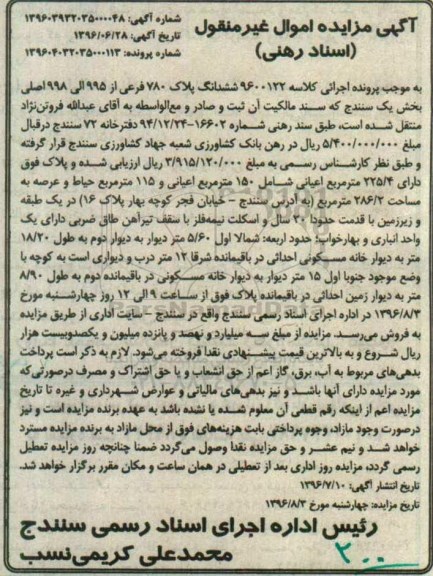 شماره آگهی: ۱۳۹۶۰۳۹۳۲۰۳۵۰۰۰۰۴۸
تاریخ آگهی: ۱۳۹۶/۰۶/۲۸
شماره پرونده: ۱۳۹۶۰۴۰۳۲۰۳۵۰۰۰۱۱۳
آگهی مزایده اموال غیرمنقول
(اسناد رهنی)
به موجب پرونده اجرائی کلاسه ۹۶۰۰۱۲۲ ششدانگ پلاک ۷۸۰ فرعی از ۹۹۵ الی ۹۹۸ اصلی
بخش یک سنندج که سند مالکیت آن ثبت و صادر و مع‌الواسطه به آقای عبدالله فروتن‌نژاد
منتقل شده است، طبق سند رهنی شماره ۱۶۶۰۲-۹۴/۱۲/۲۴ دفترخانه ۷۲ سنندج درقبال
مبلغ ۵/۴۰۰/۰۰۰/۰۰۰ ریال در رهن بانک کشاورزی شعبه جهاد کشاورزی سنندج قرار گرفته
و طبق نظر کارشناس رسمی به مبلغ ۳/۹۱۵/۱۲۰/۰۰۰ ریال ارزیابی شده و پلاک فوق
دارای ۲۲۵/۴ مترمربع اعیانی شامل ۱۵۰ مترمربع اعیانی و ۱۱۵ مترمربع حیاط و عرصه به
مساحت ۲۸۶/۲ مترمربع (به آدرس سنندج - خیابان فجر کوچه بهار پلاک ۱۶) در یک طبقه
و زیرزمین با قدمت حدودا ۳۰ سال و اسکلت نیمه‌فلز با سقف تیرآهن طاق ضربی دارای یک
واحد انباری و بهارخواب؛ حدود اربعه: شمالا اول ۵/۶۰ متر دیوار به دیوار دوم به طول ۱۸/۲۰
متر به دیوار خانه مسکونی احداثی در باقیمانده شرقا ۱۲ متر درب و دیواری است به کوچه با
وضع موجود جنوبا اول ۱۵ متر دیوار به دیوار خانه مسکونی در باقیمانده دوم به طول ۸/۹۰
متر به دیوار زمین احداثی در باقیمانده پلاک فوق از ساعت ۹ الی ۱۲ روز چهارشنبه مورخ
۱۳۹۶/۸/۳ در اداره اجرای اسناد رسمی سنندج واقع در سنندج - سایت اداری از طریق مزایده
به فروش می‌رسد. مزایده از مبلغ سه میلیارد و نهصد و پانزده میلیون و یکصدوبیست هزار
ریال شروع و به بالاترین قیمت پیشنهادی نقدا فروخته می‌شود. لازم به ذکر است پرداخت
بدهی‌های مربوط به آب، برق، گاز اعم از حق انشعاب و یا حق اشتراک و مصرف درصورتی‌که
مورد مزایده دارای آنها باشد و نیز بدهی‌های مالیاتی و عوارض شهرداری و غیره تا تاریخ
مزایده اعم از اینکه رقم قطعی آن معلوم شده یا نشده باشد به عهده برنده مزایده است و نیز
درصورت وجود مازاد، وجوه پرداختی بابت هزینه‌های فوق از محل مازاد به برنده مزایده مسترد
خواهد شد و نیم عشر و حق مزایده نقدا وصول می‌گردد ضمنا چنانچه روز مزایده تعطیل
رسمی گردد، مزایده روز اداری بعد از تعطیلی در همان ساعت و مکان مقرر برگزار خواهد شد.
تاریخ انتشار آگهی: ۱۳۹۶/۷/۱۰
تاریخ مزایده: چهارشنبه مورخ ۱۳۹۶/۸/۳
رئیس اداره اجرای اسناد رسمی سنندج
محمدعلی کریمی‌نسب
۳۰۰